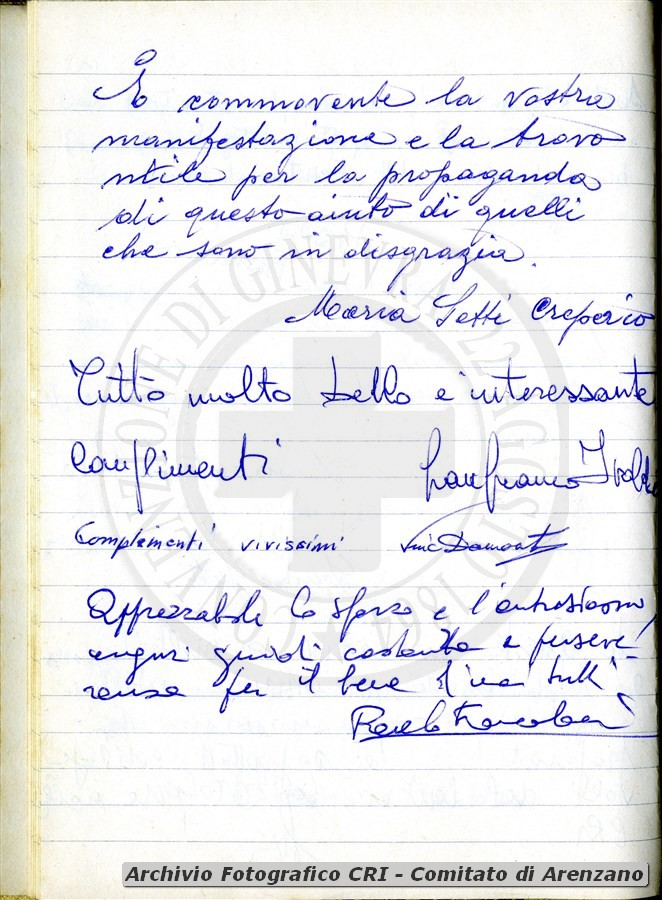 È commovente la vostra
manifestazione e la trovo
utile per la propaganda
di questo aiuto di quelli
che sono in disgrazia.
Maria Setti Creperio
Tutto molto bello e interessante
Complimenti Gianfranco
Complimenti vivissimi
Apprezzabile lo sforzo e l'entusiasmo,
auguri quindi costanza e perseve-
ranza per il bene di noi tutti
CONVENZIONE DI GINEVRA 22 AGOSTO 1864
Archivio Fotografico CRI - Comitato di Arenzano